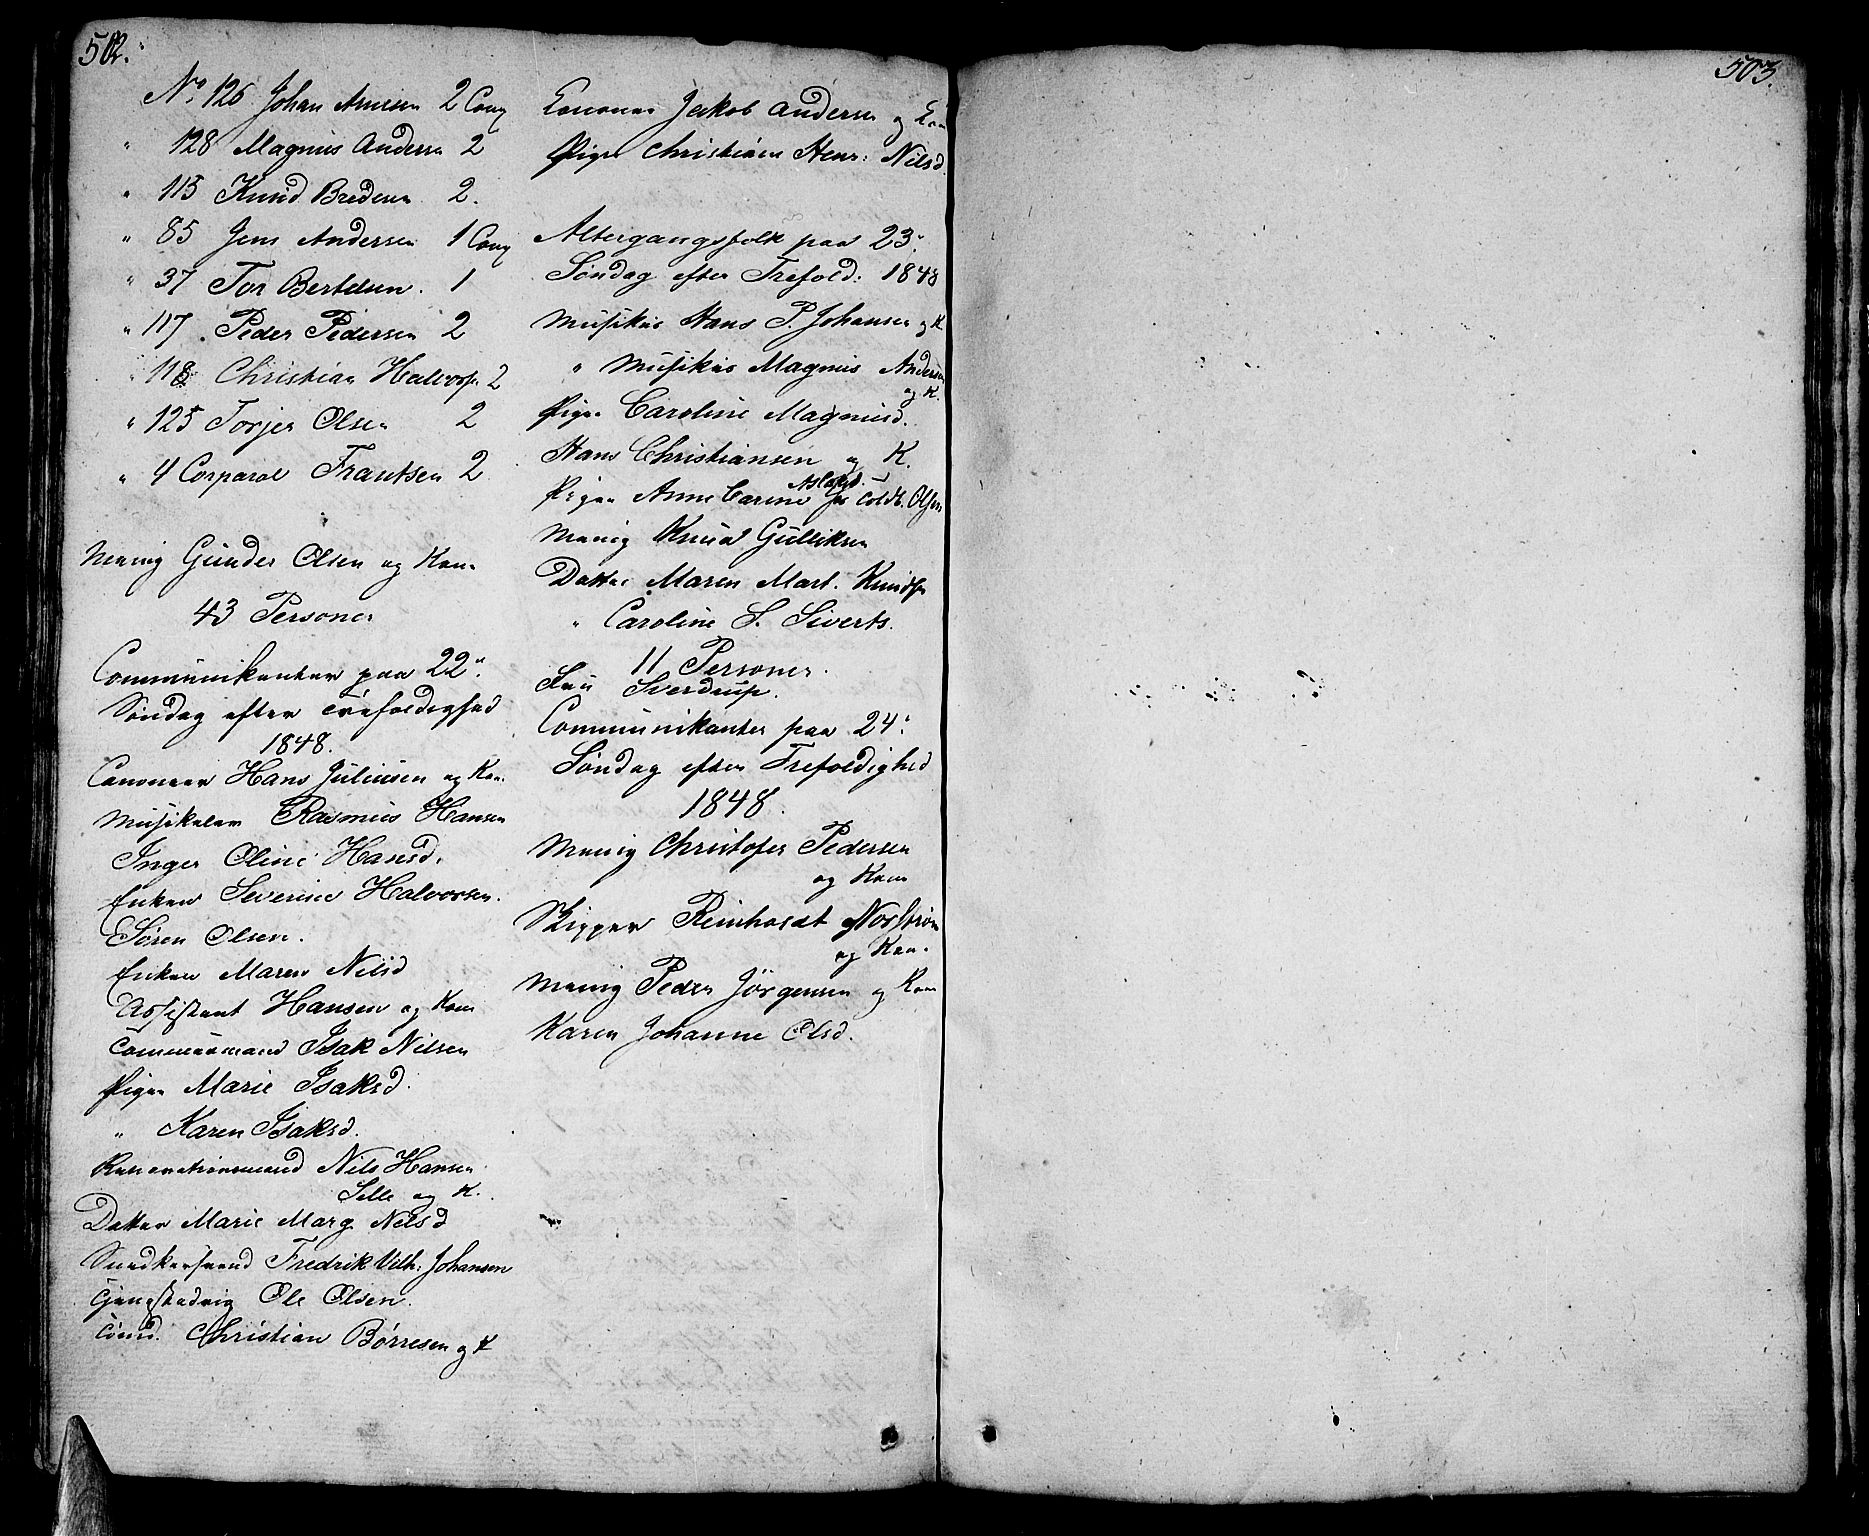 502.
No. 126 Johan Arnesen 2 Comp
" 128 Magnus Andersen 2
" 115 Knud Bredesen 2.
" 85 Jens Andersen 1 Comp
" 37 Tor Bertelsen. 1
" 117. Peder Pedersen 2
" 118 Christian Halvors. 2
" 125 Torjer Olsen 2
" 4 Corporal Frantsen 2
Menig Gunder Olsen og Kone
43 Personer
Communikanter paa 22de
Søndag efter Trefoldighed
1848.
Canoneer Hans Juliussen og Kone
Musikeler Rasmus Hansen
Inger Oline Hansd.
Enken Severine Halvorsen.
Søren Olsen.
Enken Maren Nilsd
Assistent Hansen og Kone
Tømmermand Isak Nilsen
Pigen Marie Isaksd.
" Karen Isaksd.
Renovationsmand Nils Hansen
Selle og K.
Datter Marie Marg Nilsd
Snedkersvend Fredrik Vilh. Johansen
Ole Olsen.
Tømd. Christian Børresen og K
Canoneer Jakob Andersen og Kone
Pigen Christiane Henr: Nilsd.
Altergangsfolk paa 23de
Søndag efter Trefold: 1848
Musikus Hans P. Johansen og K
" Musikus Magnus Andersen
og K.
Pigen Caroline Magnusd.
Hans Christiansen og K.
Aslaksd.
Pigen Anne Carine Olsen
Menig Knud Gulliksen
Datter Maren Mart. Knuds
" Caroline S. Siverts.
11 Personer.
Fru Sverdrup.
Communikanter paa 24de
Søndag efter Trefoldighed
1848.
Menig Christofer Pedersen
og Kone
Skipper Reinholdt Norstrøm
og Kone
Menig Peder Jørgensen og Kone
Karen Johanne Olsd.
503.